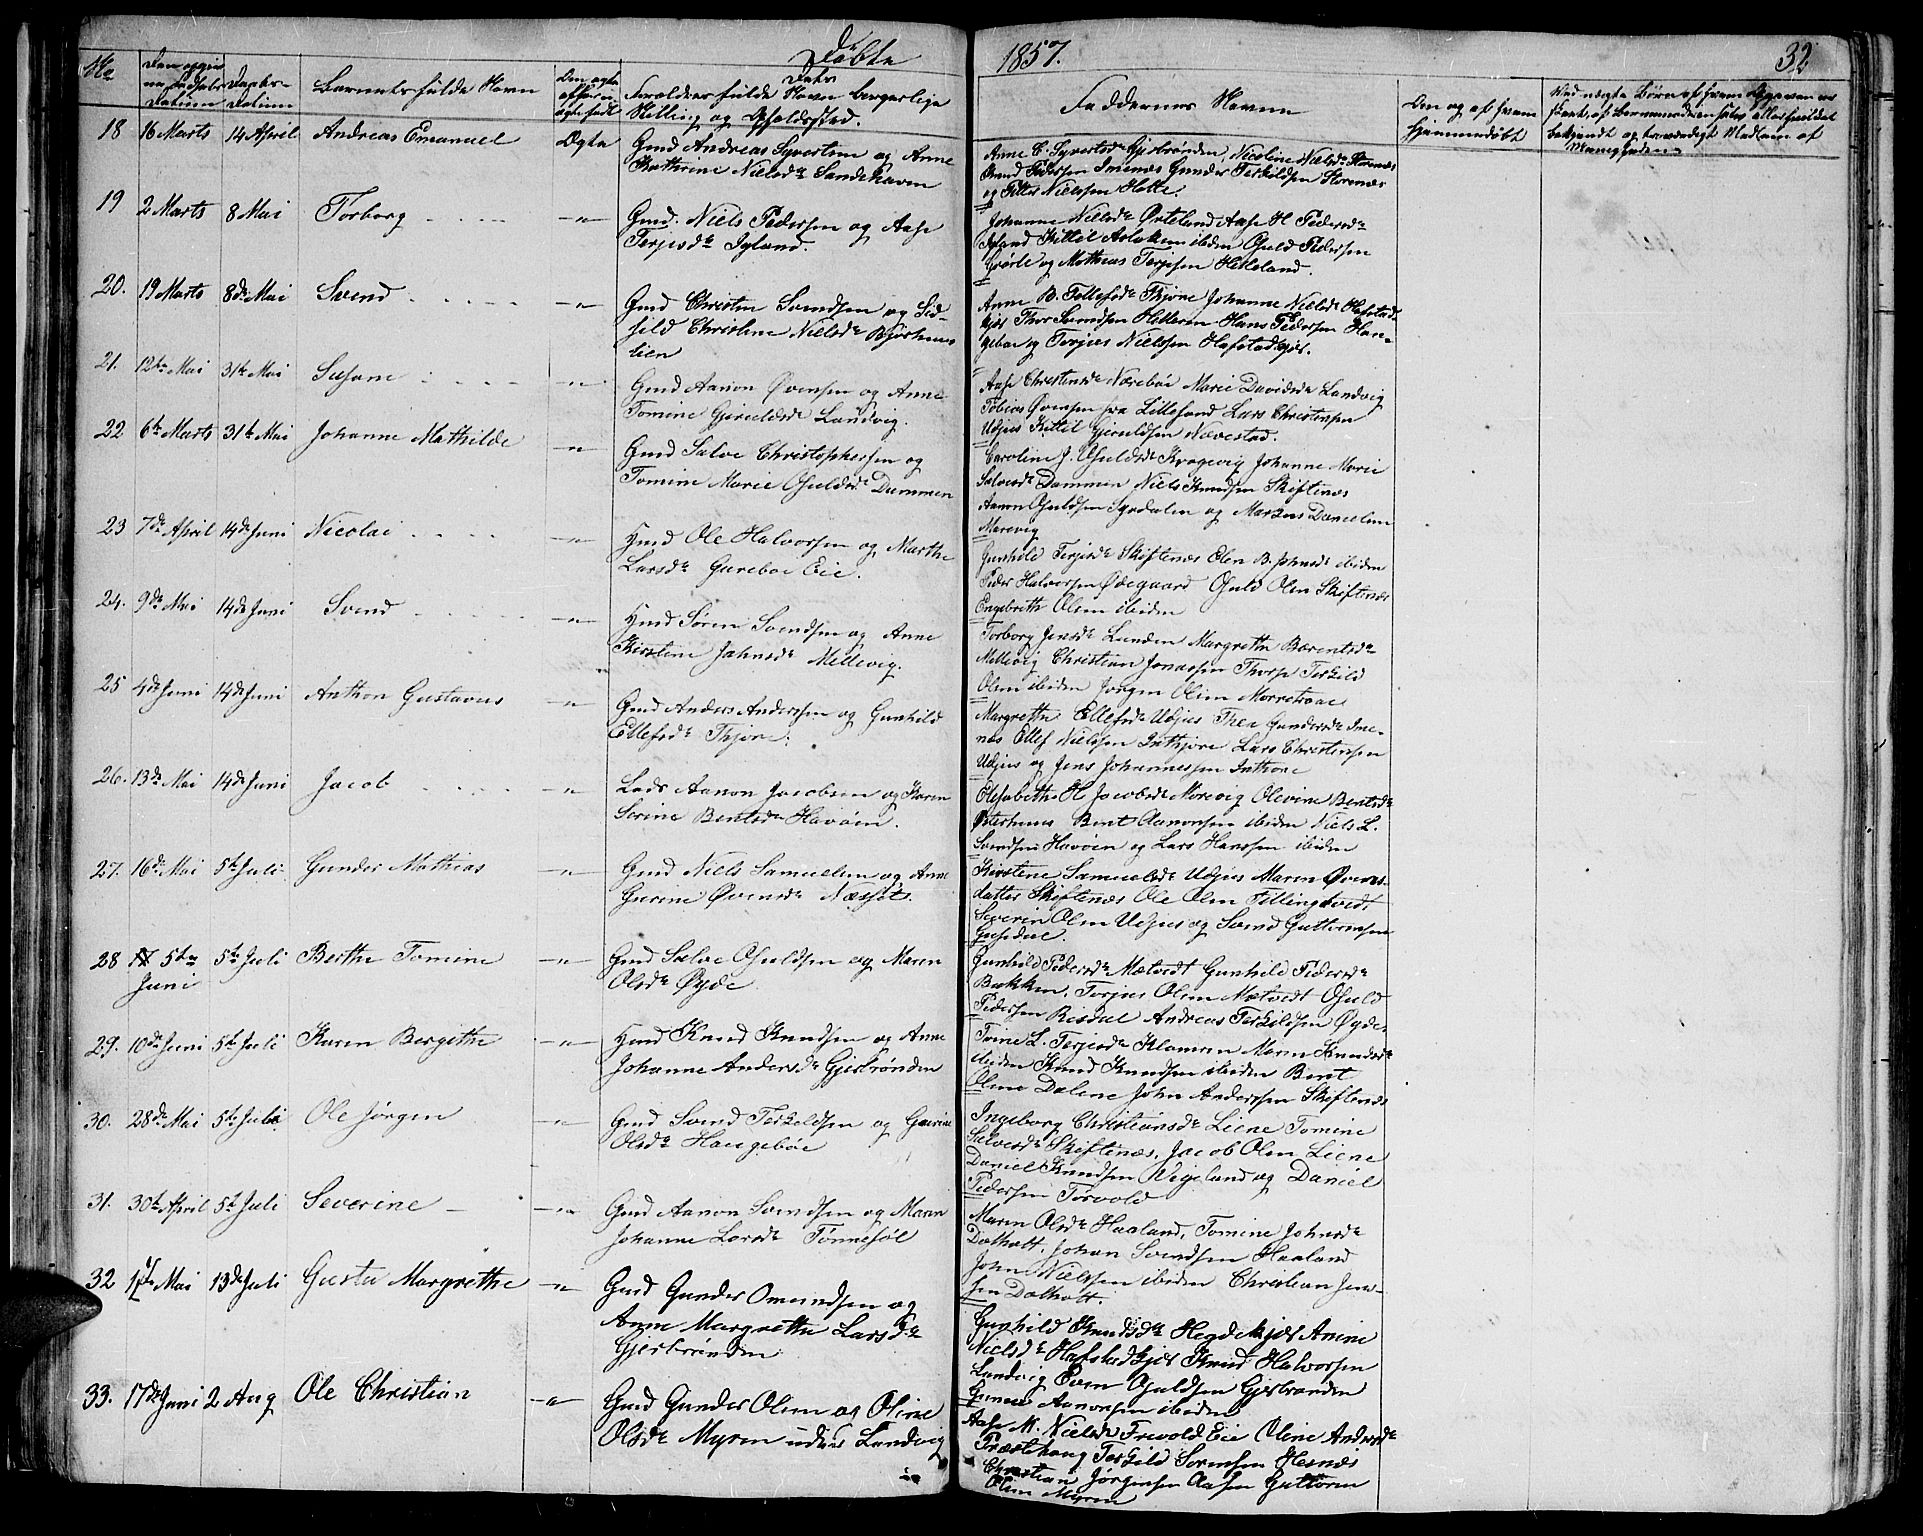 Døbte
1857.
32
No
Datum
Datum
Barnets fulde Navn
Forældres fulde Navn
Stilling og Opholdssted.
Faddernes Navne
18
16 Marts
14 April
Andreas Emanuel
Ægte
Gmd Andreas Syvertsen og Anne
Kathrine Nielsdr Sandehaven
Anne C. Syvertsdr Gjerbrønden, Nicoline Nielsdr Storenæs
Knud Pedersen Imenæs Gunder Terkildsen Storenæs
og Petter Nielssen Hette.
19
2 Marts
8 Mai
Torborg
-"-
Gmd. Niels Pedersen og Aase
Terjesdr Igland.
Johanne Nielsdr Østeland Aase H Pedersdr
Igland Kittil Aslaksen ibiden Osuld Pedersen
og Mathias Terjesen Hekleland.
20.
19 Marts
8de Mai
Svend
-"-
Gmd Christen Svendsen og
Christine Nielsdr
lien
Anne B. Tellefsdr Thjøre Johanne Nielsdr Hafstad-
kjær Thor Svendsen Hans Pedersen Hau-
gebøe og Terjus Nielssen Hafstadkjær.
21.
12te Mai
31te Mai
Susane
-"-
Gmd Aanon Øvensen og Anne
Tomine Gjeruldsdr Landvig.
Aase Christensdr Nørebøe Marie Davidsdr Landvig
Tobias Øvensen fra Lillesand Lars Christensen
Udjus Kittil Gjeruldsen Nævestad.
22
6te Marts
31te Mai
Johanne Mathilde
-"-
Gmd Salve Christophersen og
Tomine Marie Osuldsdr Dammen
Caroline J. Osuldsdr Kragevig Johanne Marie
Salvesdr Dammen Niels Knudsen Skiftenæs
Aanon Osuldsen og Markus Danielsen
Morevig
23
7de April
14de Juni
Nicolai
-"-
Hmd Ole Halvorsen og Marthe
Larsdr Gurebøe Eie.
Gunhild Terjesdr Skiftenæs Elen B. Johnsdr ibiden
Peder Halvorsen Ødegaard Osuld Olsen Skiftenæs
Engebreth Olsen ibiden
24.
9de Mai
14de Juni
Svend
-"-
Hmd Søren Svendsen og Anne
Kirstine Jahnsdr Mellevig.
Torborg Jensdr Lunden Margrethe Bærentsdr
Mellevig Christian Jonassen Thorp Terkild
Olsen ibiden Jørgen Olsen
25
4de Juni
14de Juni
Anthon Gustavus
-"-
Gmd Anders Anderssen og Gunhild
Ellefsdr Thjøre.
Margrethe Ellefsdr Udjus Thea Gundersdr Ime-
næs Ellef Nielssen Inthjøre Lars Christensen
Udjus og Jens Johannessen Inthiore
26.
13de Mai
14de Juni
Jacob
-"-
Lods Aanon Jacobsen og Karen
Serine Bentsdr Havøen.
Elisabeth H Jacobsdr Morevig Olevine Bentsdr
Østerhuus Bent Aanonsen ibiden Niels L.
Svendsen Havøen og Lars Hanssen ibiden
27.
16de Mai
5te Juli
Gunder Mathias
-"-
Gmd Niels Samuelsen og Anne
Gurine Øvensdr Næssøt.
Kirstene Samuelsdr Udjus Maren Øvens-
datter Skiftenæs Ole Olsen Fillingtvedt
Severin Olsen Udjus og Svend Guttormsen
28
5te
Juni
5te Juli
Berthe Tomine
-"-
Gmd Salve Osuldsen og Maren
Olsdr Øyde
Gunhild Pedersdr Mætvedt Gunhild Pedersdr
Bakken, Terjus Olsen Mætvedt Osuld
Pedersen Risdal Andreas Terkildsen Øyde.
29.
10de Juni
5te Juli
Karen Bergithe
-"-
Hmd Knud Knudsen og Anne
Johanne Andersdr Gjerbrønden
Trine L. Terjesdr Klemren Maren Knudsdr
ibiden Knud Knudsen ibiden Bent
Olsene Dalene John Anderssen Skiftenæs
30.
28de Mai
5te Juli
Ole Jørgen
-"-
Gmd Svend Terkeldsen og Gurine
Olsdr Haugebøe
Ingeborg Christiansdr Liene Tomine
Salvesdr Skiftenæs, Jacob Olsen Liene
Daniel Knudsen Vigeland og Daniel
Pedersen Tørvold
31.
30te April
5te Juli
Severine
-"-
Gmd Aanon Svendsen og Maren
Johanne Larsdr Tønnesøl
Maren Olsdr Haaland, Tomine Johnsdr
Dolholt, Johan Svendsen Haaland
John Nielssen ibiden Christian Jens-
sen Dolholt.
32
1ste Mai
13de Juli
Gusta Margrethe
-"-
Gmd Gunder Omundsen og
Anne Margrethe Larsdr
Gjerbrønden
Gunhild Knudsdr Hegdekjær Anine
Nielsdr Hafstedkjær Knud Halvorsen
Landvig Even Osuldsen Gjerbrønden
Gunder Aanonsen ibiden
33.
17de Juni
2 Aug
Ole Christian
-"-
Gmd Gunder Olsen og Oline
Olsdr Myren under Landvig
Aase M. Nielsdr Frevold Eie Oline Andersdr
Præsthaug Terkild Sørensen Hesnæs
Christian Jørgensen Aasen Guttorm
Olsen Myren